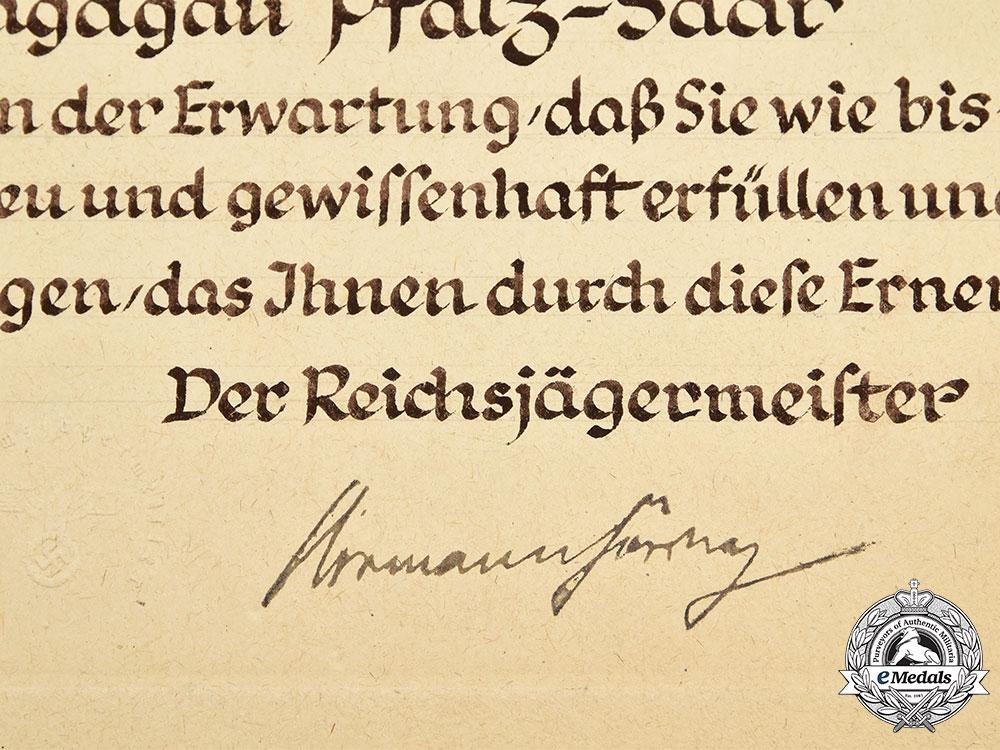 agdgau Pfalz-Saar
n der Erwartung, daß Sie wie bis
eu und gewiſſenhaft erfüllen und
gen, das Ihnen durch dieſe Erne
Der Reichsjägermeiſter
Hermann Göring
Purveyors of Authentic Militaria
eMedals